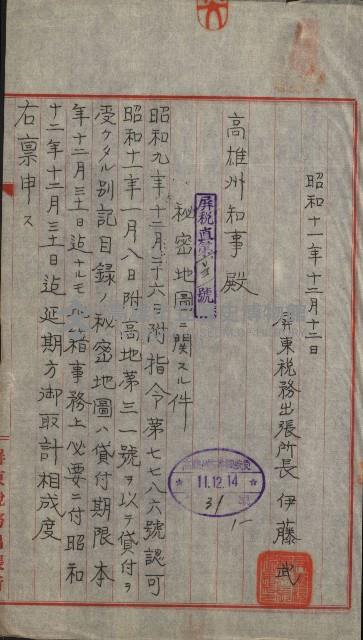 昭和十一年十二月十二日
屏東税務出張所長 伊藤 武
高雄州知事殿
屏税直第 號
秘密地圖ニ関スル件
昭和九年十二月二十六日附指令第七七八六號認可
昭和十一年一月八日附高地第三一號ヲ以テ貸付ヲ
受ケタル別記目録ノ秘密地圖ハ貸付期限本
年十二月三十一日迄ナルモ 事務上必要ニ付昭和
十二年十二月三十一日迄延期方御取計相成度
右稟申ス
11.12.14